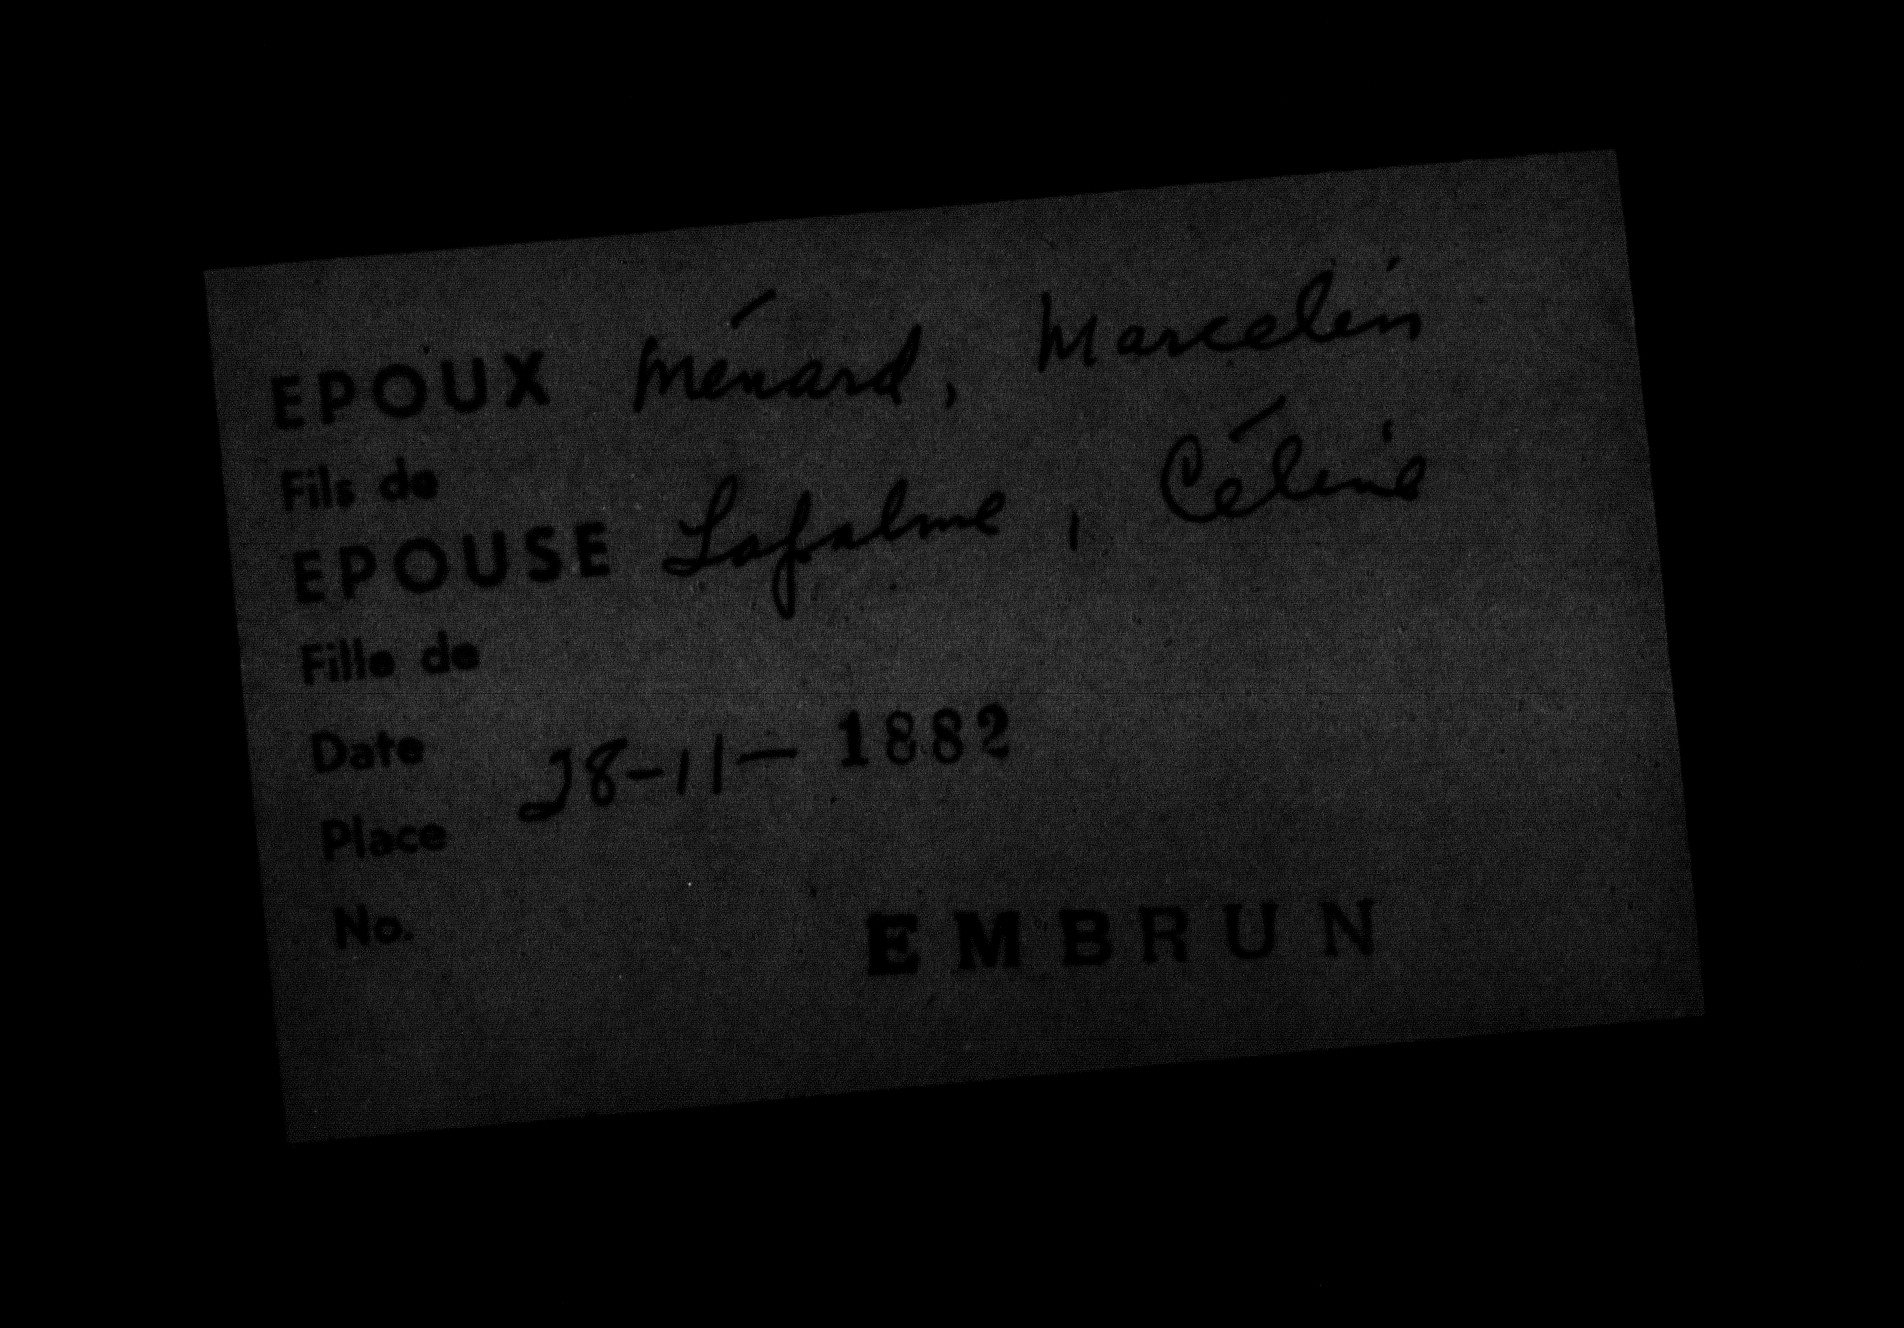 EPOUX Ménard, Marcelin
Fils de
EPOUSE Lafalme, Céline
Fille de
Date 28-11-1882
Place
No.
EMBRUN